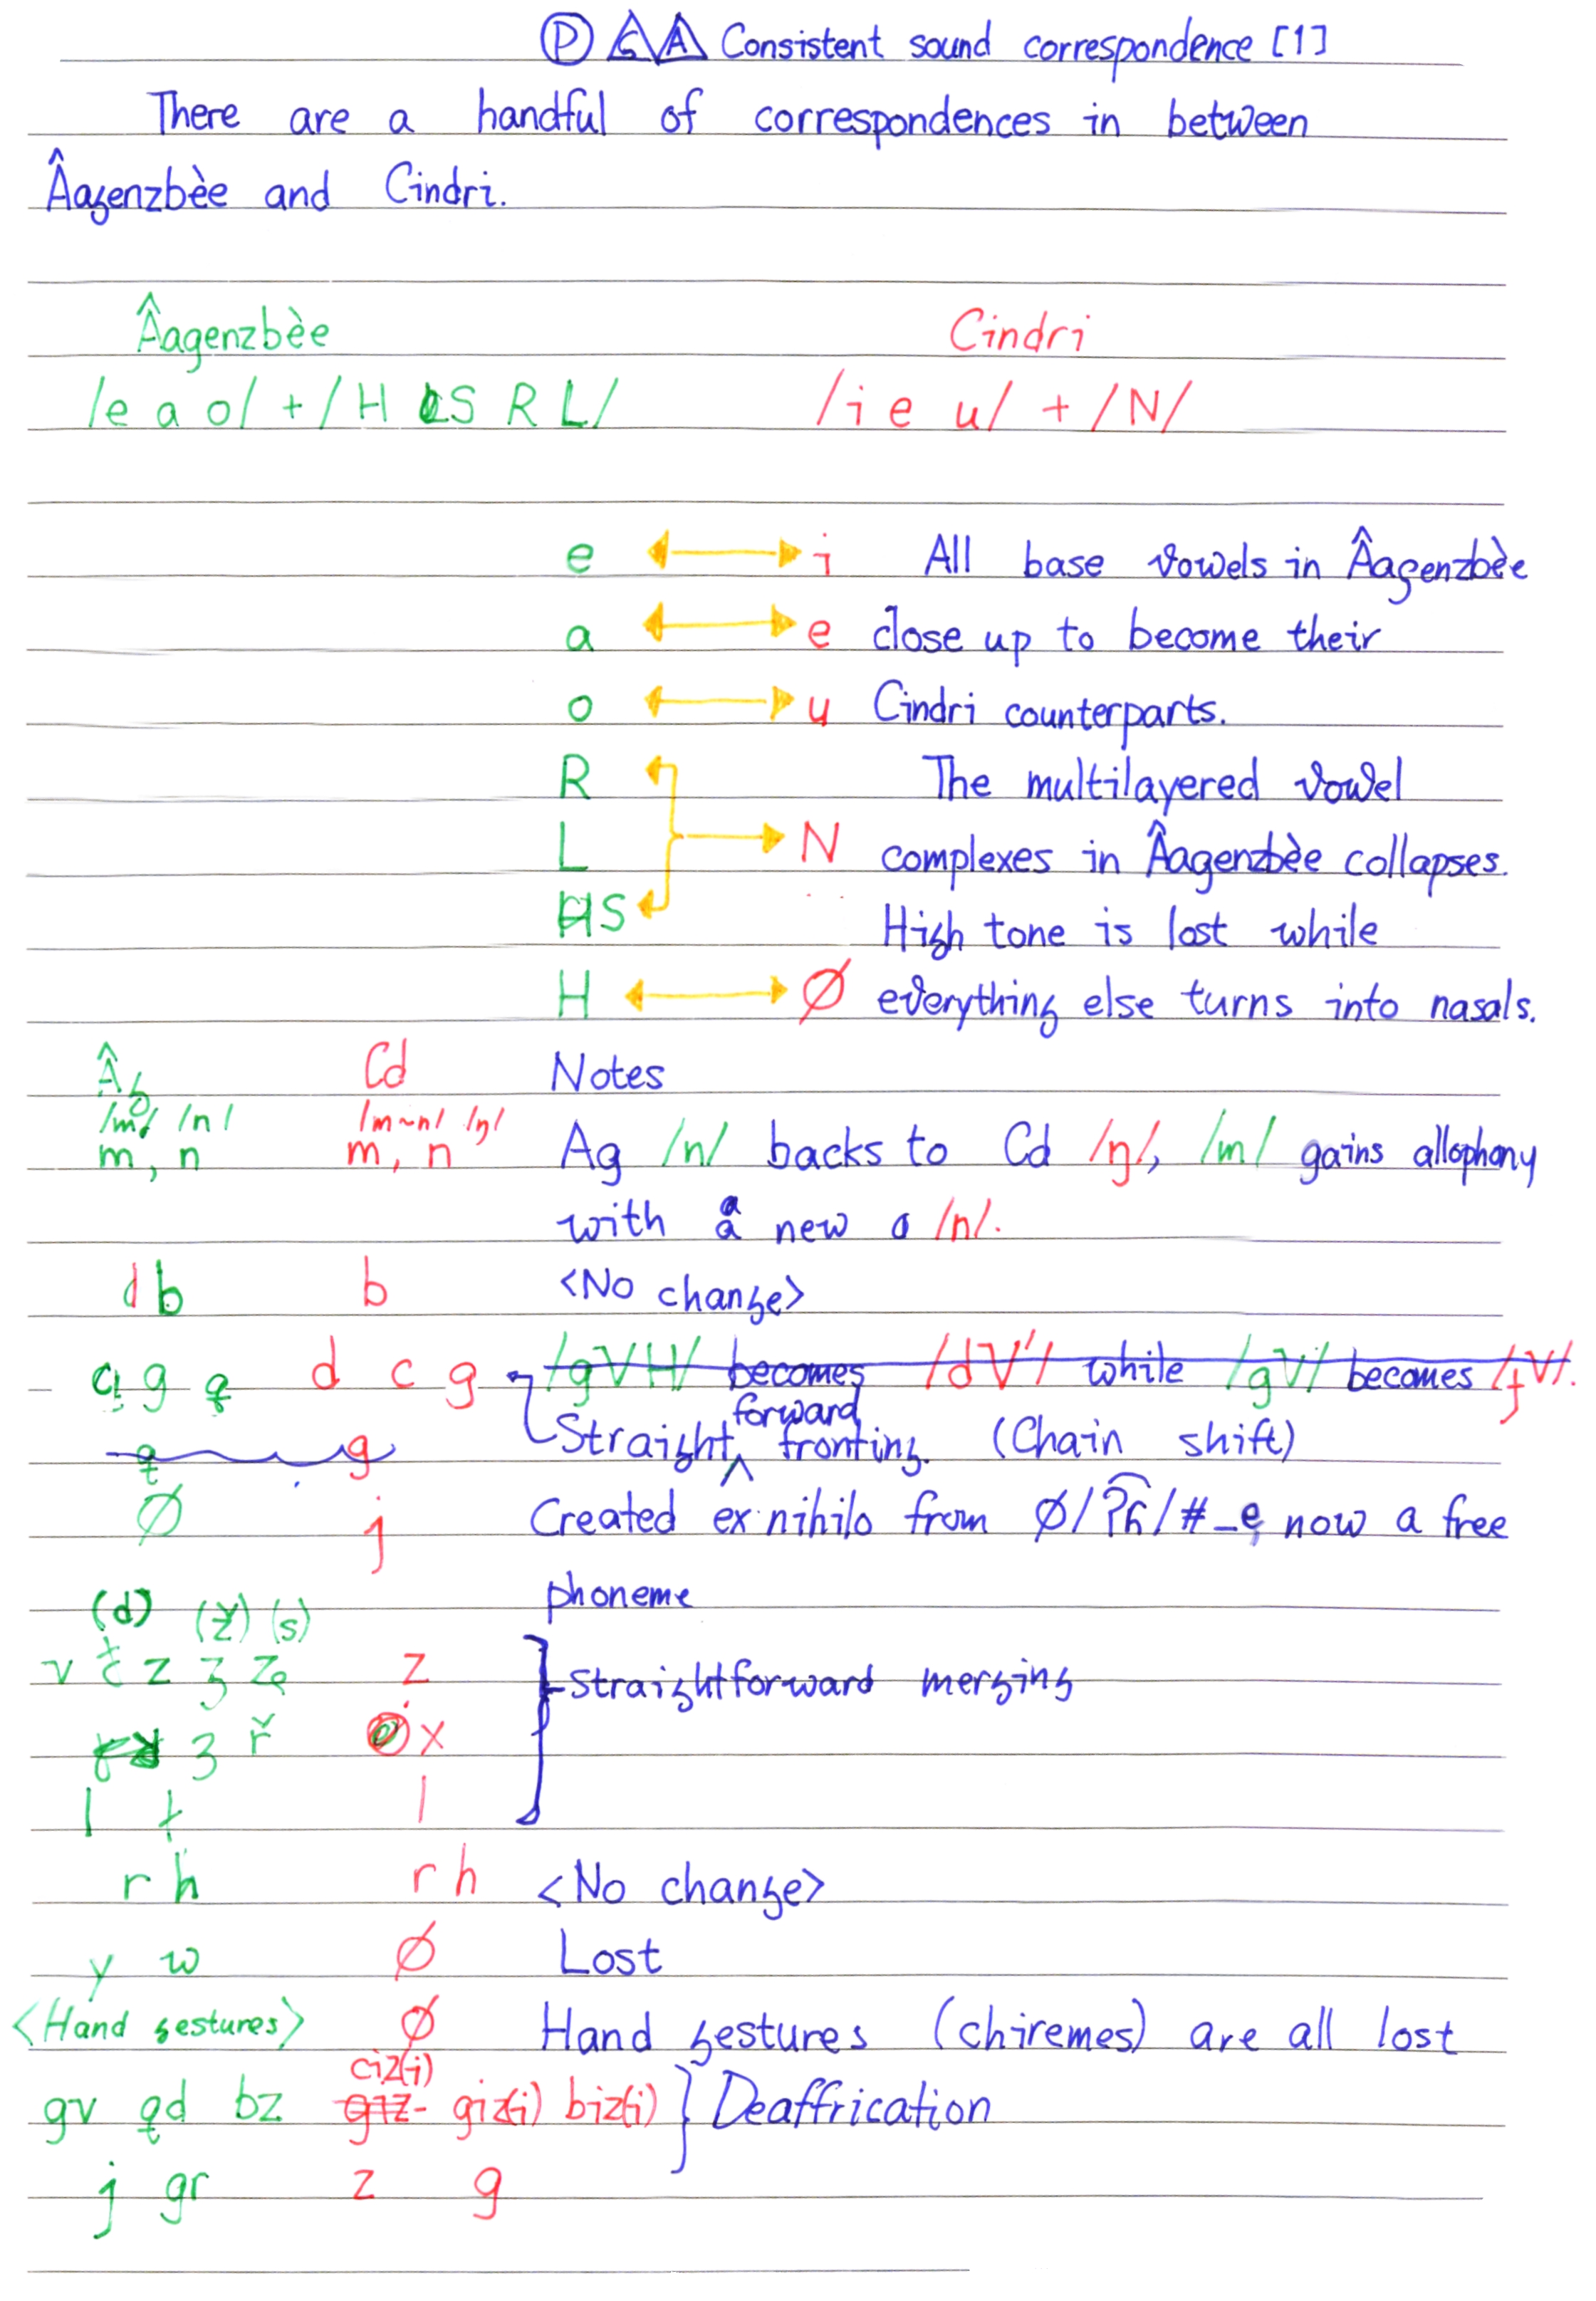 Ⓟ Consistent sound correspondence [1]
There are a handful of correspondences in between
Âagenzbèe and Cindri.
Âagenzbèe Cindri
/e a o/ + /H S R L/ /i e u/ + /N/
e i All base vowels in Âagenzbèe
a e close up to become their
o u Cindri counterparts.
R The multilayered vowel
L N complexes in Âagenzbèe collapses.
S High tone is lost while
H Ø everything else turns into nasals.
Âg Cd Notes
/m/ /n/ /m~n/ /ŋ/
m, n m, n Ag /n/ backs to Cd /ŋ/, /m/ gains allophony
with a new /n/.
b b <No change>
g d c g /gVH/ becomes /dV́/ while /gV/ becomes /ɟV/.
Straight forward fronting. (Chain shift)
g
Ø j Created ex nihilo from Ø/ʔ͡ɦ/#_e, now a free
phoneme
(d) (s)
v z z Straightforward merging
ʒ ř x
l ł l
r h r h <No change>
y w Ø Lost
<Hand gestures> Ø Hand gestures (chiremes) are all lost
ciz(i)
gv qd bz giz- giz(i) biz(i) Deaffrication
j gr z g